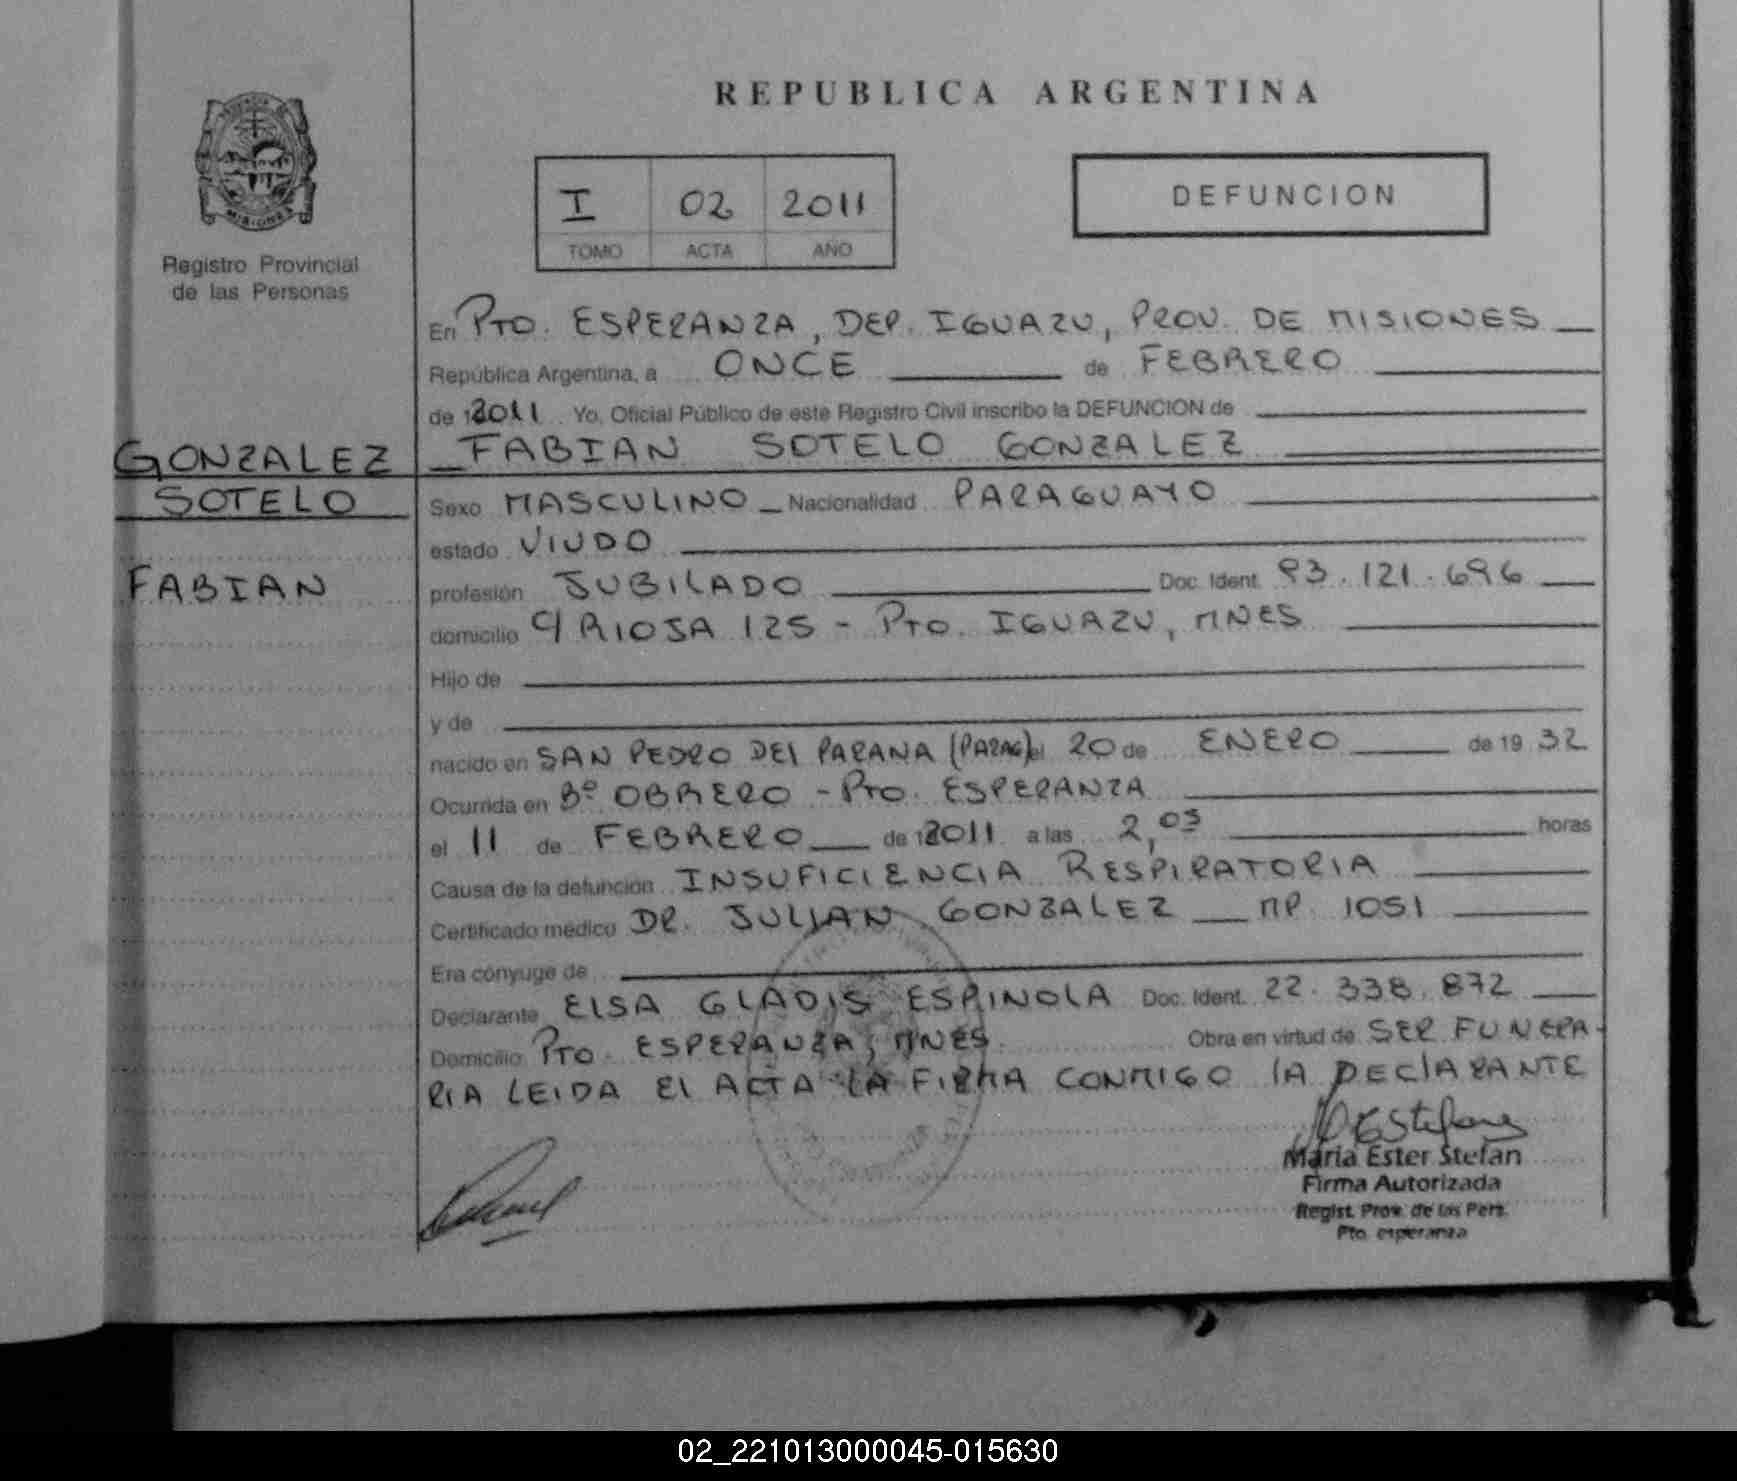 REPUBLICA ARGENTINA
MISIONES
Registro Provincial
de las Personas
I 02 2011
TOMO ACTA AÑO
DEFUNCION
En PTO. ESPERANZA, DEP. IGUAZU, PROV. DE MISIONES
República Argentina, a ONCE de FEBRERO
de 2011 Yo, Oficial Público de este Registro Civil inscribo la DEFUNCION de
GONZALEZ
FABIAN SOTELO GONZALEZ
SOTELO
Sexo MASCULINO Nacionalidad PARAGUAYO
estado VIUDO
FABIAN
profesión JUBILADO Doc. Ident. 93.121.696
domicilio C/ RIOJA 125 - PTO. IGUAZU, MNES
Hijo de
y de
nacido en SAN PEDRO DEL PARANA (PARAG) el 20 de ENERO de 1932
Ocurrida en Bº OBRERO - PTO. ESPERANZA
el 11 de FEBRERO de 2011 a las 2,05 horas
Causa de la defunción INSUFICIENCIA RESPIRATORIA
Certificado médico DR. JULIAN GONZALEZ MP. 1051
Era cónyuge de
Declarante ELSA GLADIS ESPINOLA Doc. Ident. 22.338.872
Domicilio PTO. ESPERANZA, MNES. Obra en virtud de SER FUNERA-
RIA LEIDA EL ACTA LA FIRMA CONMIGO LA DECLARANTE
Maria Ester Stefan
Firma Autorizada
Regist. Prov. de las Pers.
Pto. esperanza
02_221013000045-015630